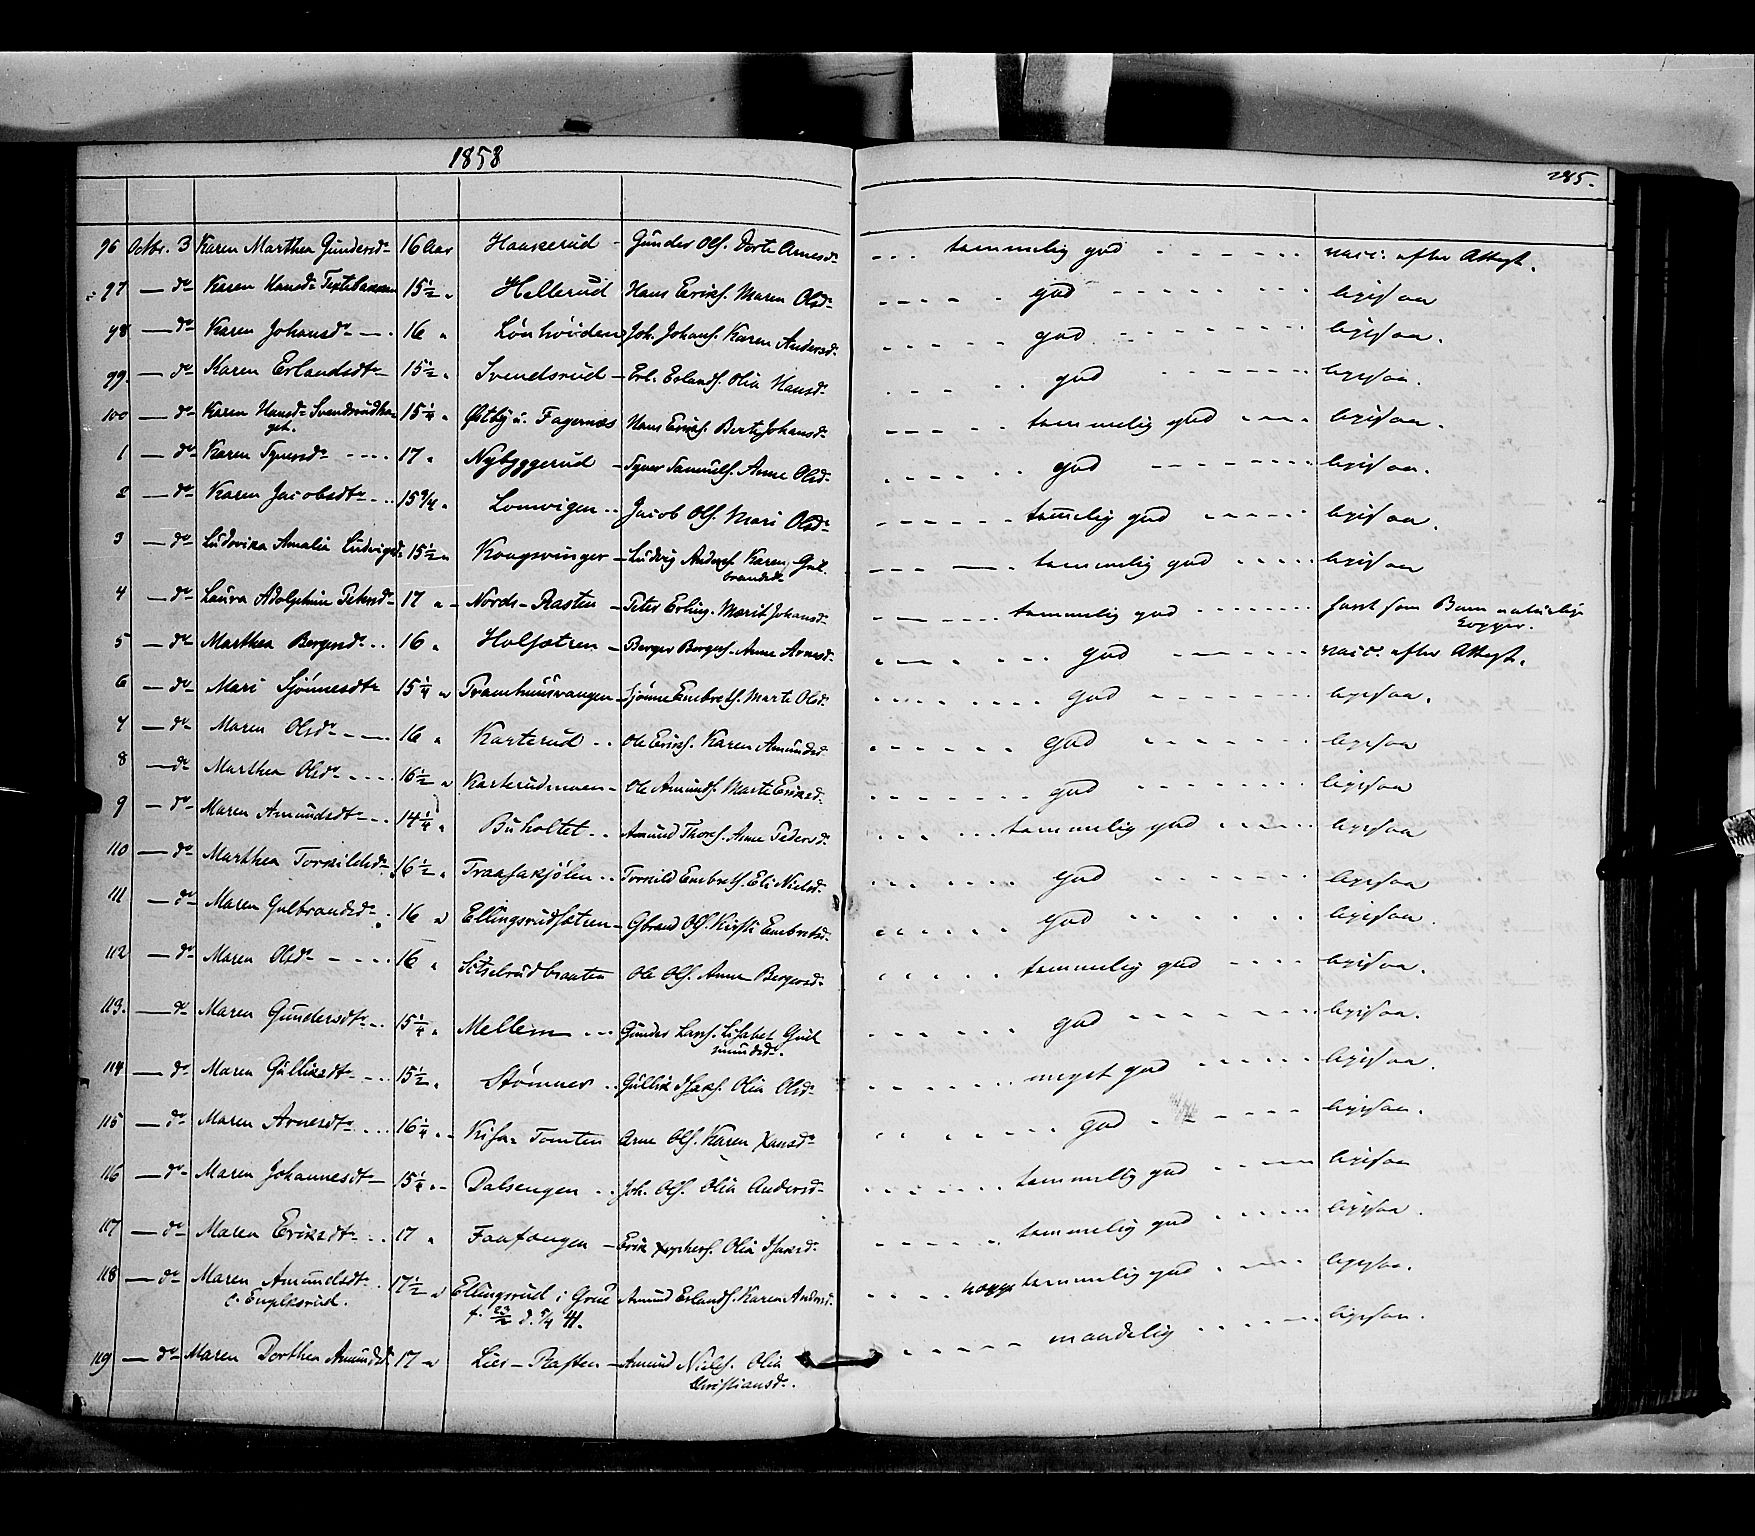 1858
285.
96 Octbr. 3 Karen Marthea Gundersdr 16 Aar Haakerud - Gunder Ols. Dorte Arnesdr - - - temmelig god - - - - - vacc. efter Attest.
97 — do Karen Hansdr 15½ " Hellerud Hans Eriks. Maren Olsdr - - - - god - - - - - ligesaa
98 — do Karen Johansdr — 16 " Lönhöiden Joh. Johans. Karen Andersdr - - - - god - - - - - ligesaa.
99. — do Karen Erlandsdtr 15½ " Svendsrud - Erl. Erlands. Olia Hansdr - - - - god - - - - - ligesaa.
100 — do Karen Hansdr 15¼ " Østby u. Fagernæs Hans Eriks. Berte Johansdr - - - - temmelig god - - - ligesaa.
1 — do Karen Synersdr - - - - 17 " Nybyggerud - Syver Samuels. Anne Olsdr - - - - god - - - - - ligesaa.
2 — do Karen Jacobsdtr - - 15¾ " Lomvigen - - Jacob Ols. Mari Olsdr - - - - temelig god - - - - ligesaa.
3 — do Ludovika Amalia Ludvigsd. 15½ " Kongsvinger - Ludvig Anders. Karen Gul-
brandsdr - - - — - temmelig god - - - - ligesaa
4 — do Laura Adolphine Petersdr 17 " - Nordr-Rasten - Peter Erling. Marit Johansdr - - - - temmelig god - - - - havt som Barn naturlige
Kopper.
5 — do Marthea Bergersdr - - 16 " Holsætren - Berger Bergers. Anne Arnesdr - - - - god - - - - - vacc. efter Attest.
6 — do Mari Sjönnesdtr 15¼ " - Sjönne Embrets. Marte Olsdr - - - - god - - - - - ligesaa.
7 — do Maren Olsdr - — 16 " Karterud - - Ole Eriks. Karen Amundsdr - - - - god - - - - - ligesaa
8 — do Marthea Olsdr - - - - 16½ " Karterudmoen - Ole Amunds. Marte Eriksd. - - - - god - - - - - ligesaa
9 — do Maren Amundsdtr - - 14¼ " Buholtet - - Amund Thors. Anne Pedersdr - - - - temmelig god - - - - ligesaa
110 — do Marthea Torkildsdr 16½ " Traasakjölen - - Torkild Embrets. Eli Nielsdr - - - - god - - - - - ligesaa
111 — do Maren Gulbrandsdr 16 " Ellingsrudsætren - Gbrand Ols. Kirsti Embretsdr - - - - god - - - - - ligesaa.
112 — do Maren Olsdr - - - - 16 " Sitselrudbraaten Ole Ols. Anne Bergersdr - - - - temmelig god - - - - ligesaa.
113. — do Maren Gundersdtr - 15¼ " Mellem - - - Gunder Lars. Lisabet Gud-
mundsdr. - - - - god - - - - - ligesaa.
114 — do Maren Gulliksdtr - - 15½ " Stömner - - Gullik Isaks. Olia Olsdr - - - - meget god - - - - ligesaa.
115 — do Maren Arnesdtr - - - 16¼ " - Kisa - Tomten Arne Ols. Karen Hansdr - - - - god - - - - - ligesaa.
116 — do Maren Johannesdtr — 15¼ " - Dalsengen - - Joh. Ols. Olia Andersdr - - - - temmelig god - - - - ligesaa
117 — do Maren Eriksdtr - - 17 " - Erik Olia Isaksdr. - - - - temmelig god - - - - ligesaa.
118 — do Maren Amundsdtr 17½ " Ellingsrud i Grue Amund Erlands. Karen Andersd. - - - - neppe temmelig god - - - - ligesaa.
f. 23/2 d. 5/4 41.
119 — do Maren Dorthea Amundsd. 17 " Lier - Rasten - Amund Niels. Olia
Christiansdr. - - - - maadelig - - - - - ligesaa.